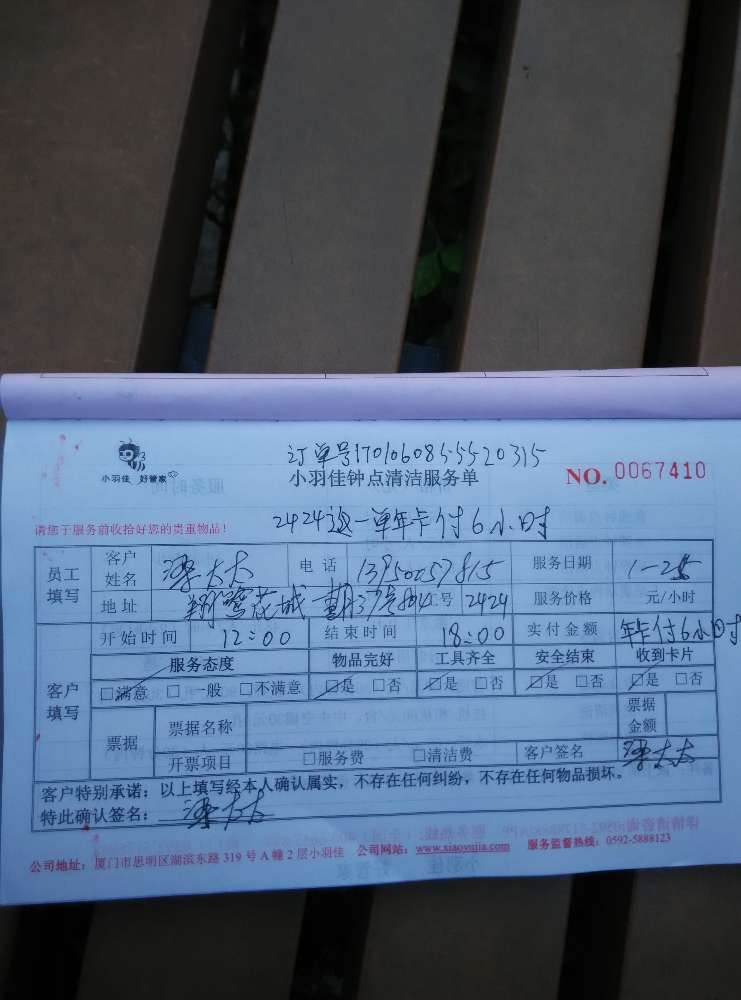 订单号1701060855520315
小羽佳 好管家
小羽佳钟点清洁服务单
NO. 0067410
请您于服务前收拾好您的贵重物品！
2424这一单年卡付6小时
员工填写 客户姓名 太太 电话 13950257815 服务日期 1-25
地址 翔鹭花城 号 2424 服务价格 元/小时
开始时间 12:00 结束时间 18:00 实付金额 年卡付6小时
客户填写 服务态度 物品完好 工具齐全 安全结束 收到卡片
□满意 □一般 □不满意 □是 □否 □是 □否 □是 □否 □是 □否
票据 票据名称 票据金额
开票项目 □服务费 □清洁费 客户签名 太太
客户特别承诺：以上填写经本人确认属实，不存在任何纠纷，不存在任何物品损坏。
特此确认签名： 太太
公司地址：厦门市思明区湖滨东路 319 号 A 幢 2 层小羽佳 公司网站：www.xiaoyujia.com 服务监督热线：0592-5888123